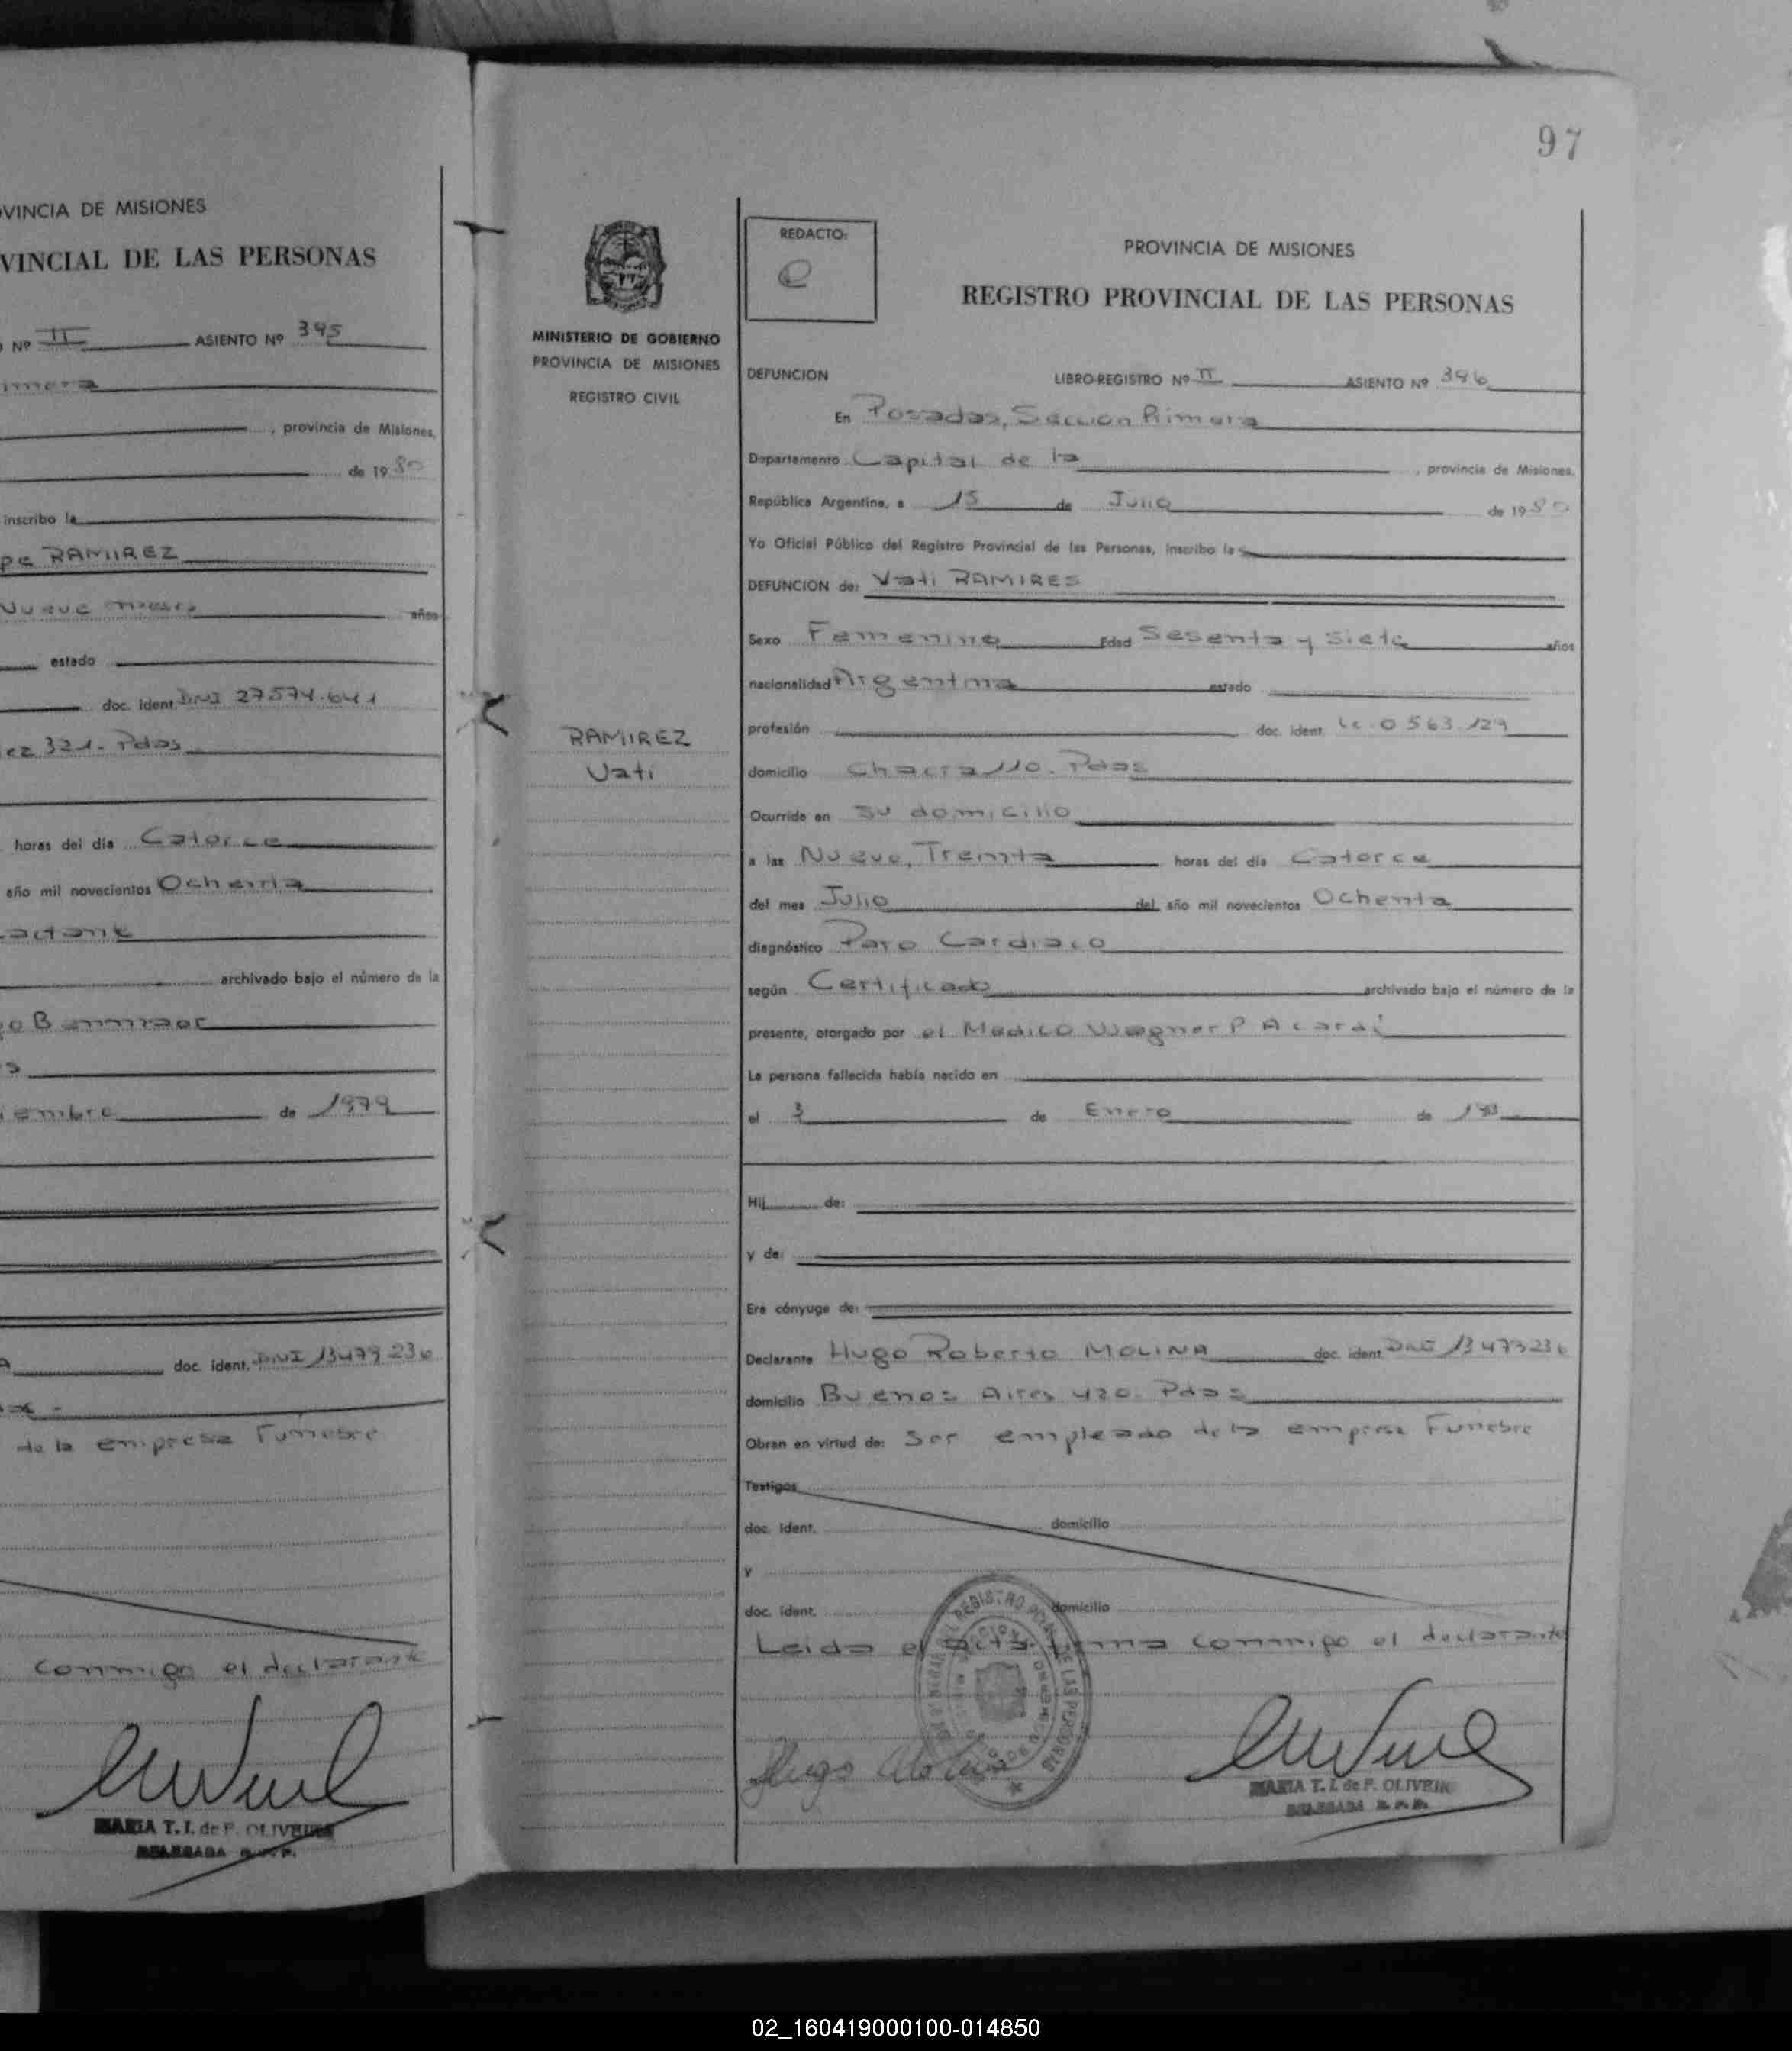 VINCIA DE MISIONES
VINCIAL DE LAS PERSONAS
Nº II ASIENTO Nº 395
imera
, provincia de Misiones,
de 1980
inscribo la
pe RAMIREZ
Nueve meses años
estado
doc. ident. DNI 27574.641
ez 321. Pdas
horas del día Catorce
año mil novecientos Ochenta
actante
archivado bajo el número de la
go B
s
iembre de 1979
a doc. ident. DNI 13479236
de la empresa Funebre
conmigo el declarante
MARIA T. I. de F. OLIVEIRA
DELEGADA R. P. P.
97
MINISTERIO DE GOBIERNO
PROVINCIA DE MISIONES
REGISTRO CIVIL
RAMIREZ
Vati
REDACTO:
e
PROVINCIA DE MISIONES
REGISTRO PROVINCIAL DE LAS PERSONAS
DEFUNCION LIBRO-REGISTRO Nº II ASIENTO Nº 396
En Posadas, Seccion Primera
Departamento Capital de la , provincia de Misiones,
República Argentina, a 15 de Julio de 1980
Yo Oficial Público del Registro Provincial de las Personas, inscribo la
DEFUNCION de: Vati RAMIRES
Sexo Femenino Edad Sesenta y Siete años
nacionalidad Argentina estado
profesión doc. ident. Lc. 0563.129
domicilio Chacra 110. Pdas
Ocurrida en su domicilio
a las Nueve, Treinta horas del día Catorce
del mes Julio del año mil novecientos Ochenta
diagnóstico Paro Cardiaco
según Certificado archivado bajo el número de la
presente, otorgado por el Medico Wagner P Acarai
La persona fallecida había nacido en
el 3 de Enero de
Hij de:
y de:
Era cónyuge de:
Declarante Hugo Roberto MOLINA doc. ident. DNI 13479236
domicilio Buenos Aires 420. Pdas
Obran en virtud de: Ser empleado de la empresa Funebre
Testigos
doc. ident. domicilio
y
doc. ident. domicilio
Leida el acta firma conmigo el declarante
Hugo Molina
MARIA T. I. de F. OLIVEIRA
DELEGADA R. P. P.
02_160419000100-014850